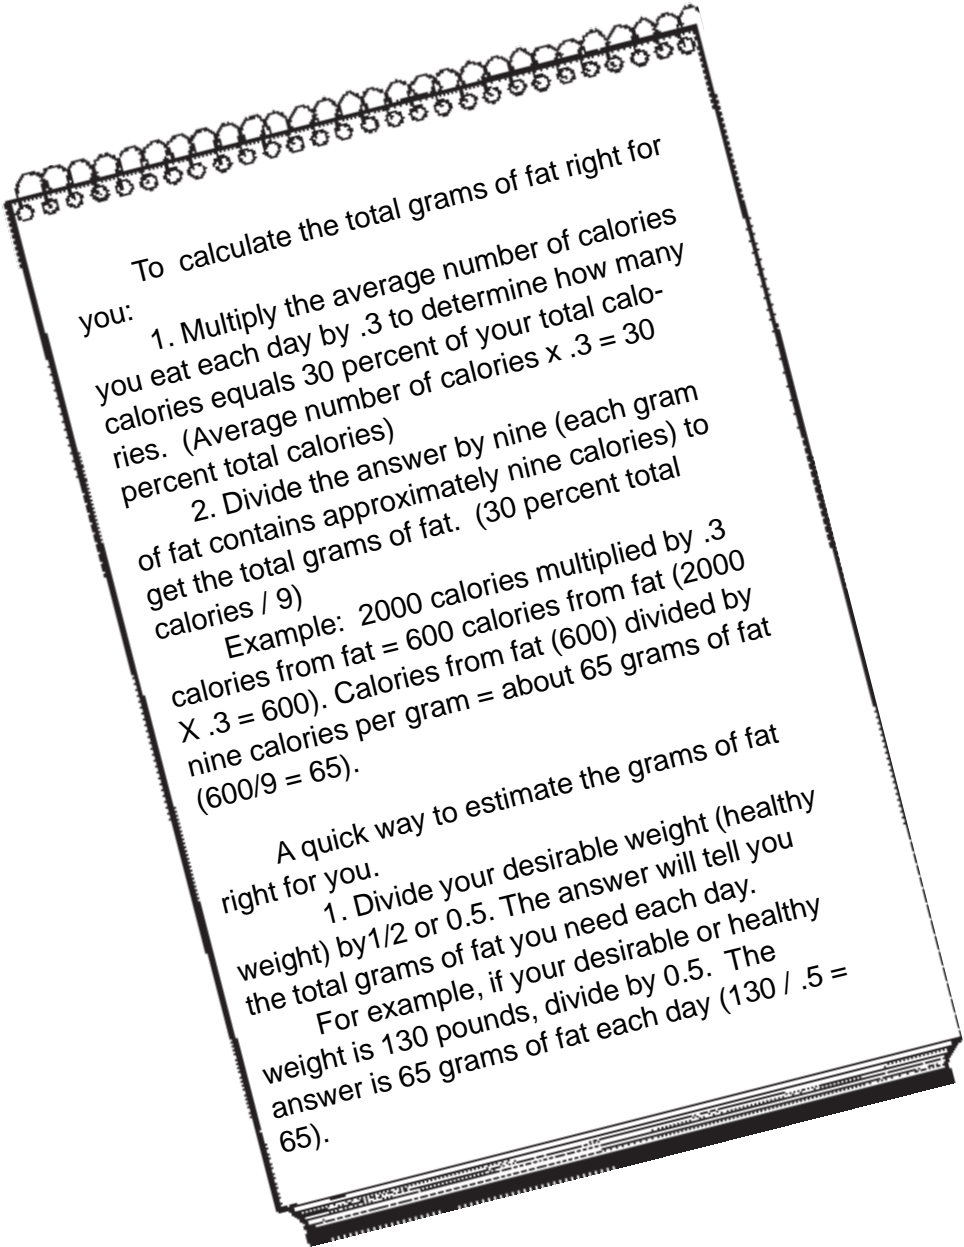 To calculate the total grams of fat right for
you:
1. Multiply the average number of calories
you eat each day by .3 to determine how many
calories equals 30 percent of your total calo-
ries. (Average number of calories x .3 = 30
percent total calories)
2. Divide the answer by nine (each gram
of fat contains approximately nine calories) to
get the total grams of fat. (30 percent total
calories / 9)
Example: 2000 calories multiplied by .3
calories from fat = 600 calories from fat (2000
X .3 = 600). Calories from fat (600) divided by
nine calories per gram = about 65 grams of fat
(600/9 = 65).
A quick way to estimate the grams of fat
right for you.
1. Divide your desirable weight (healthy
weight) by1/2 or 0.5. The answer will tell you
the total grams of fat you need each day.
For example, if your desirable or healthy
weight is 130 pounds, divide by 0.5. The
answer is 65 grams of fat each day (130 / .5 =
65).